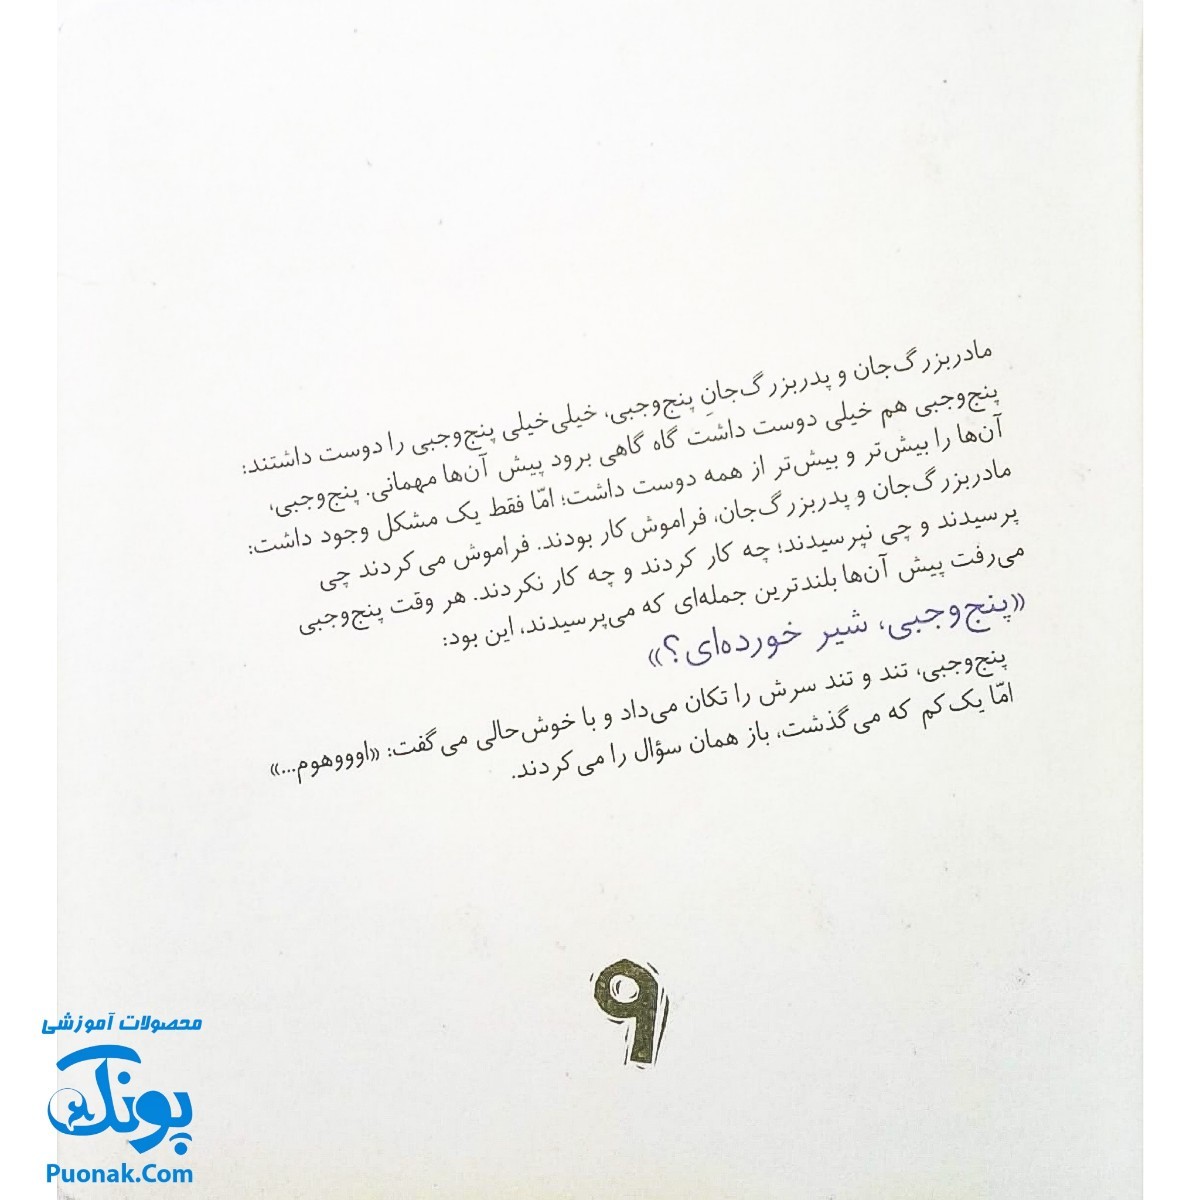 مادربزرگ‌جان و پدربزرگ‌جانِ پنج‌وجبی، خیلی‌خیلی پنج‌وجبی را دوست داشتند:
پنج‌وجبی هم خیلی دوست داشت گاه گاهی برود پیش آن‌ها مهمانی. پنج‌وجبی،
آن‌ها را بیش‌تر و بیش‌تر از همه دوست داشت؛ امّا فقط یک مشکل وجود داشت:
مادربزرگ‌جان و پدربزرگ‌جان، فراموش‌کار بودند. فراموش می‌کردند چی
پرسیدند و چی نپرسیدند؛ چه کار کردند و چه کار نکردند. هر وقت پنج‌وجبی
می‌رفت پیش آن‌ها بلندترین جمله‌ای که می‌پرسیدند، این بود:
«پنج‌وجبی، شیر خورده‌ای؟»
پنج‌وجبی، تند و تند سرش را تکان می‌داد و با خوش‌حالی می‌گفت: «اوووهوم...»
امّا یک‌کم که می‌گذشت، باز همان سؤال را می‌کردند.
۹
محصولات آموزشی
پونک
Puonak.Com